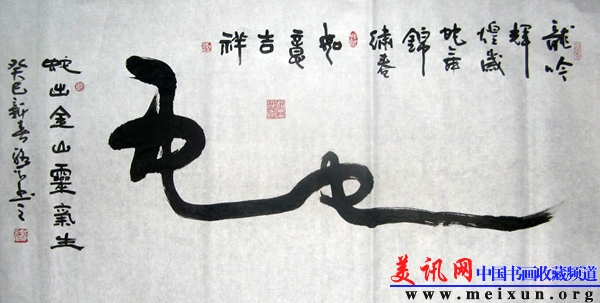 龍吟
輝
煌歲
蛇舞
錦
繡春
如
意
吉
祥
蛇
蛇出金山靈氣生
癸巳新春书之
美讯网中国书画收藏频道
www.meixun.org